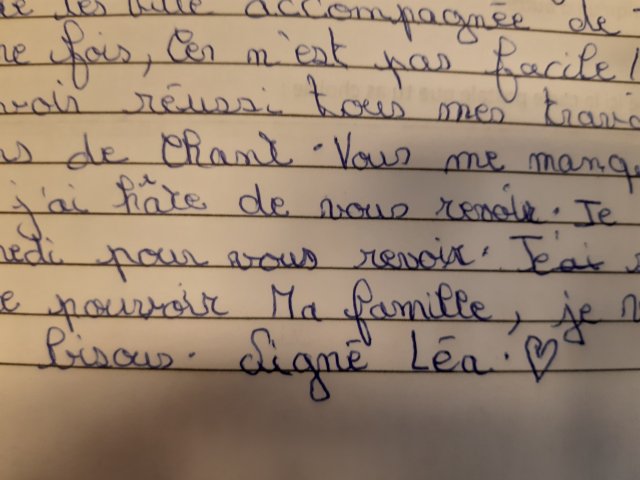 les ville accompagnée de
fois, Cer n'est pas facile!
réussi tous mes
de Chant. Vous me
j'ai hâte de vous revoir. Je
pour vous revoir. Je ai
pouvoir Ma famille, je
bisous. Signé Léa. ♡